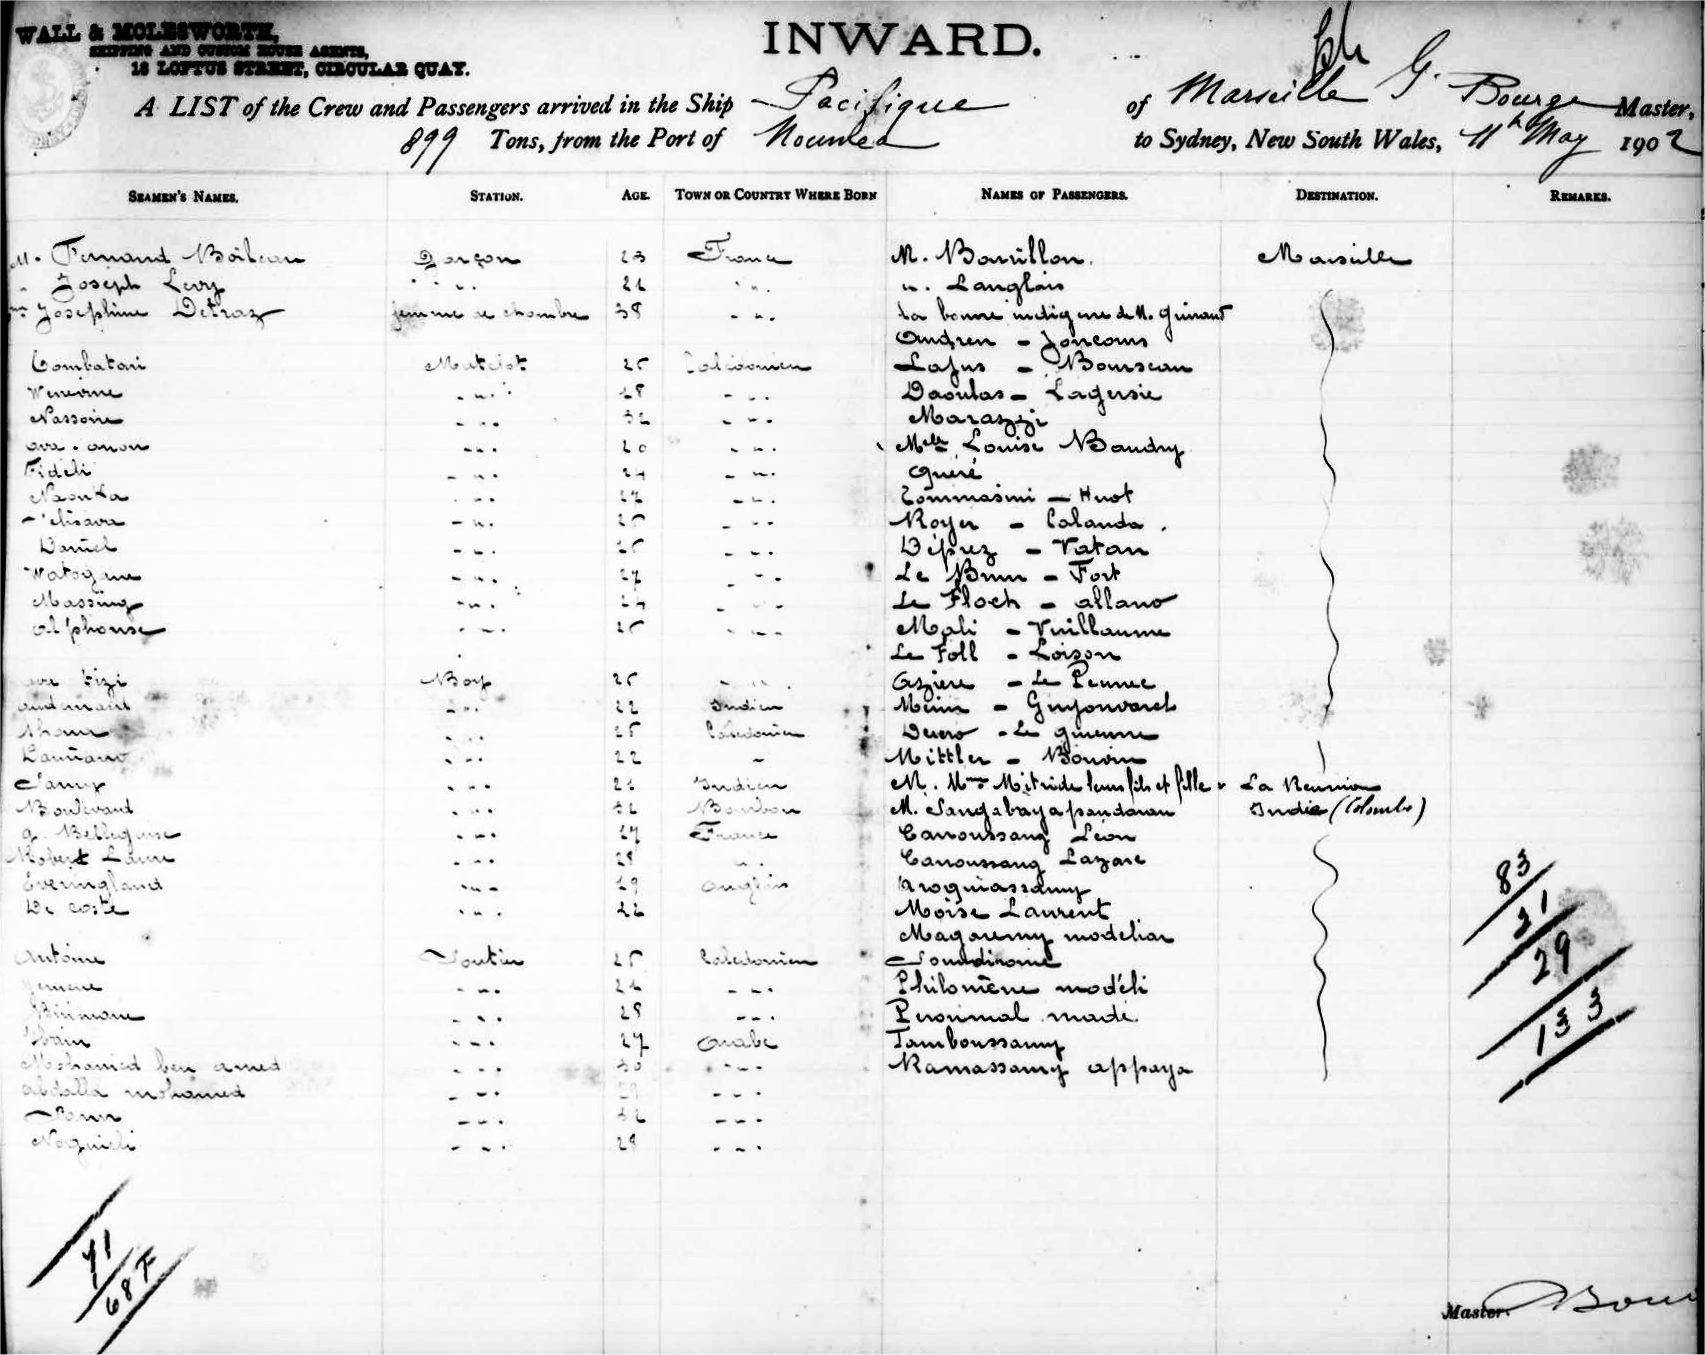 WALL & MOLESWORTH,
SHIPPING AND CUSTOM HOUSE AGENTS,
18 LOFTUS STREET, CIRCULAR QUAY.
INWARD.
A LIST of the Crew and Passengers arrived in the Ship Pacifique of Marseille G. Bourge Master,
899 Tons, from the Port of Noumea to Sydney, New South Wales, 11th May 1902
SEAMEN'S NAMES. STATION. AGE. TOWN OR COUNTRY WHERE BORN NAMES OF PASSENGERS. DESTINATION. REMARKS.
M. Fernand Boileau Garçon 23 France M. Bouillon. Marseille
" Joseph Levy " " " " " Langlois
Josephine Detraz femme de chambre 38 " " La bonne indigene de M. Guiraud
Andren - Joncour
Combatari Matelot 25 Caledonien Lafus - Bourseau
28 Daoulas - Lagersie
Nassoire " " 32 " " Marazzi
20 " " Melle Louise Baudry
Fideli " " 24 " " Queré
Naouka " " 27 " " Tommasini - Huot
25 " " Royer - Calanda.
Daniel " " 25 " " Déprez - Vatan
Watogune " " 27 " " Le Brun - Fort
Massing " " 24 " " Le Floch - allano
alphonse " " 25 " " Mali - Vuillaume
Le Foll - Loison
Boy 25 " " Aziere - Le Pennec
22 Indien Meim - Guyonvarch
25 Caledonien Le guienne
Damiano " " 22 " Mittler - Bouvin
Samy " " Indien M. Mme Mitride leurs fils et fille " La Reunion
Boulevard " " 32 Bourbon M. Sangabayapandaran India (Colombo)
g. Bellegarse " " 27 France Canoussang Léon
Robert Laine " " 28 " Canoussang Lazare
Everingland " " 29 Anglais Aroquiassamy
De coste " " 22 Moïse Laurent
Magaremy modeliar
Antoine Soutier 25 Caledonien
" " Philomène modéli
Birimone " " 28 " " Perounal modé.
27 Arabe Tamboussamy
Mohamed ben amed " " 30 " " Ramassamy appaya
abdalla mohamed " " 29 " "
" " 32 " "
" " 29 " "
83
21
29
133
71
68 F
Master.